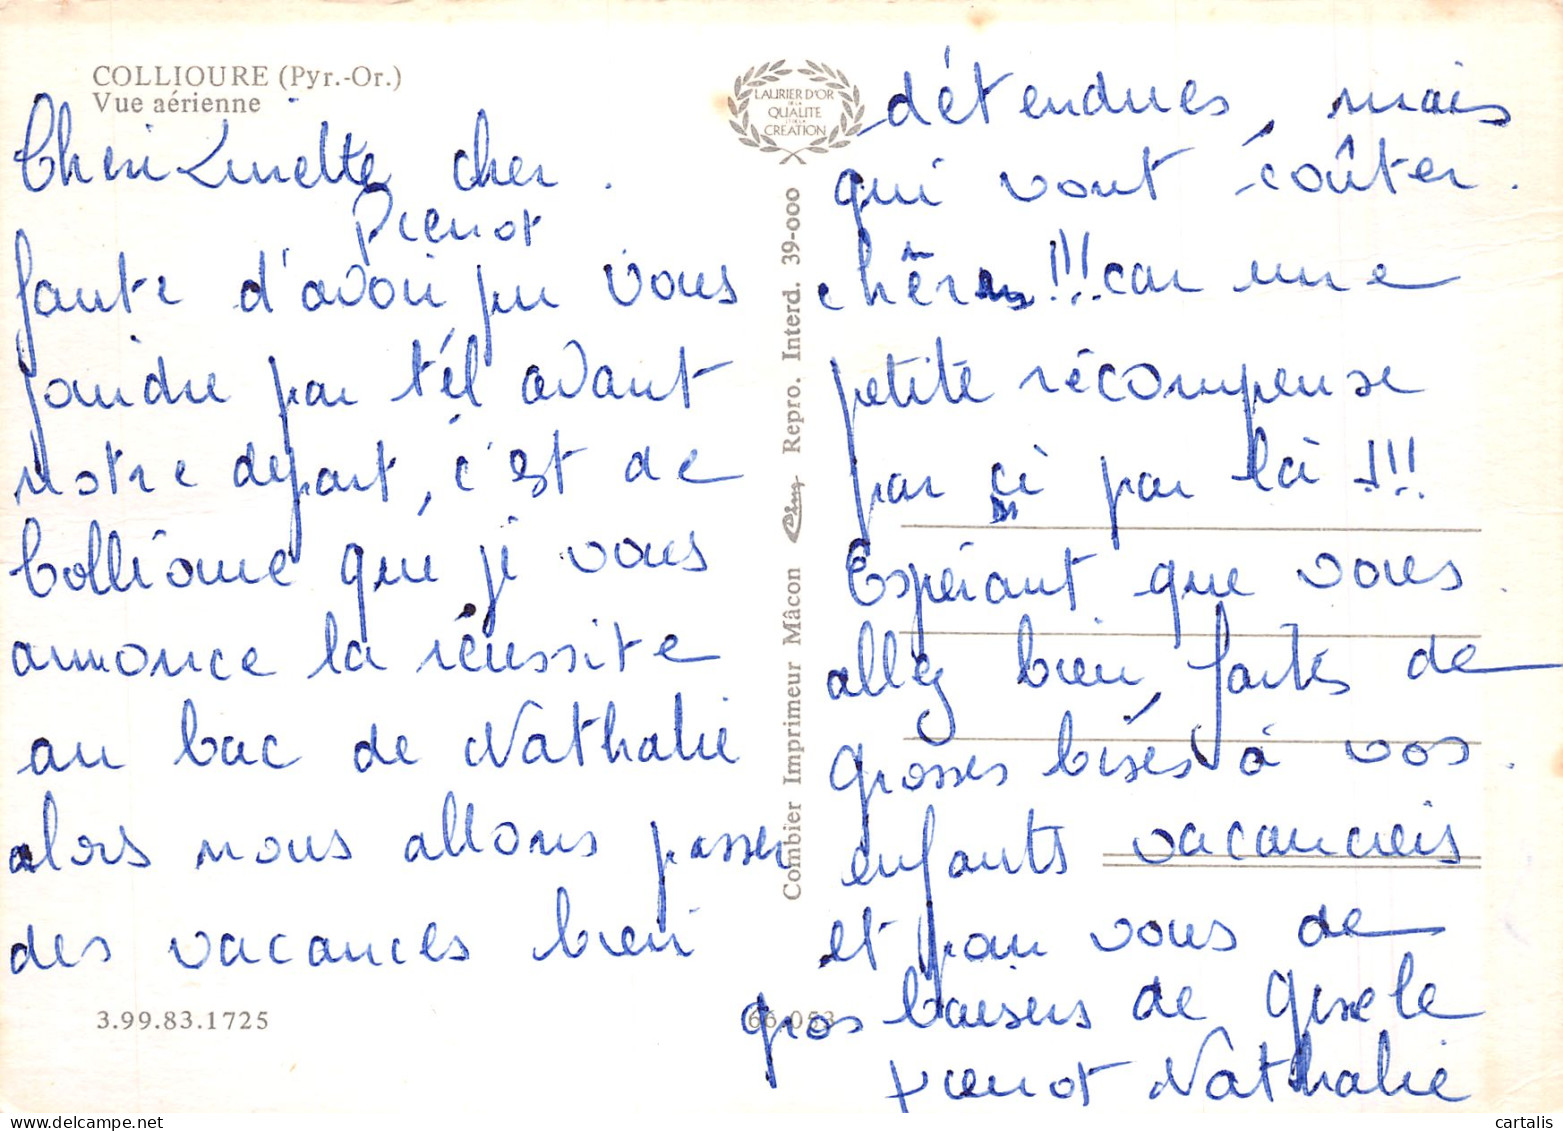 COLLIOURE (Pyr.-Or.)
Vue aérienne
Cheri Linette cher
Pierrot
faute d'avoir pu vous
joindre par tél avant
notre depart, c'est de
Collioure que je vous
annonce la réussite
au bac de Nathalie
alors nous allons passer
des vacances bien
3.99.83.1725
LAURIER D'OR
DE LA
QUALITE
ET DE LA
CREATION
Combier Imprimeur Mâcon Cim Repro. Interd. 39-000
détendues, mais
qui vont coûter
chères!!! car une
petite récompense
par ci par là !!!
Espérant que vous
allez bien, faites de
grosses bises à vos
enfants vacanciers
et pour vous de
66.053
gros baisers de Gisele
Pierrot Nathalie
cartalis